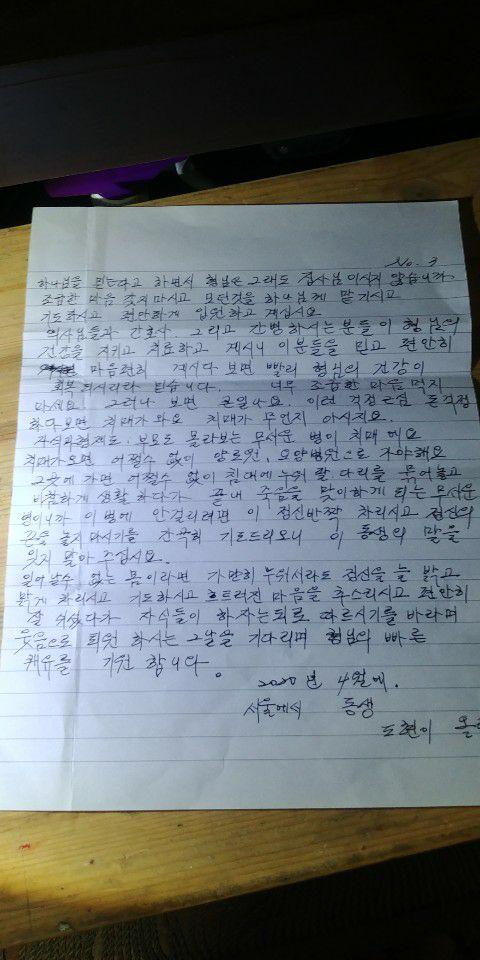 No. 3
하나님을 믿는다고 하면서 형님은 그래도 집사님 이시지 않습니까
조급한 마음 갖지마시고 모던것을 하나님께 맡기시고
기도하시고 편안하게 입원하고 계십시요
의사님들과 간호사 그리고 간병하시는분들이 형님의
건강을 지키고 치료하고 계시니 이분들을 믿고 편안히
마음편히 계시다 보면 빨리 형님의 건강이
회복되시리라 믿습니다. 너무 조급한 마음 먹지
마세요 그러다 보면 큰일나요. 이런 걱정 근심 돈걱정
하다보면 치매가 와요 치매가 무언지 아시지요.
자식과형제도 부모도 몰라보는 무서운 병이 치매 에요
치매가오면 어쩔수 없이 양로원, 요양병원으로 가야해요
그곳에 가면 어쩔수 없이 침대에 누워 팔 다리를 묶어놓고
비참하게 생활 하다가 끝내 죽음을 맞이하게 되는 무서운
병이니까 이병에 안걸리려면 이 정신반짝 차리시고 정신의
끈을 놓지 마시기를 간곡히 기도드리오니 이 동생의 말을
잊지 말아 주십시요.
일어날수 없는 몸이라면 가만히 누워서라도 정신을 늘 밝고
맑게 차리시고 기도하시고 흐트러진 마음을 추스리시고 편안히
쉬셨다가 자식들이 하자는대로 따르시기를 바라며
웃음으로 퇴원 하시는 그날을 기다리며 형님의 빠른
쾌유를 기원 합니다.
2020년 4월에.
서울에서 동생
도현이 올